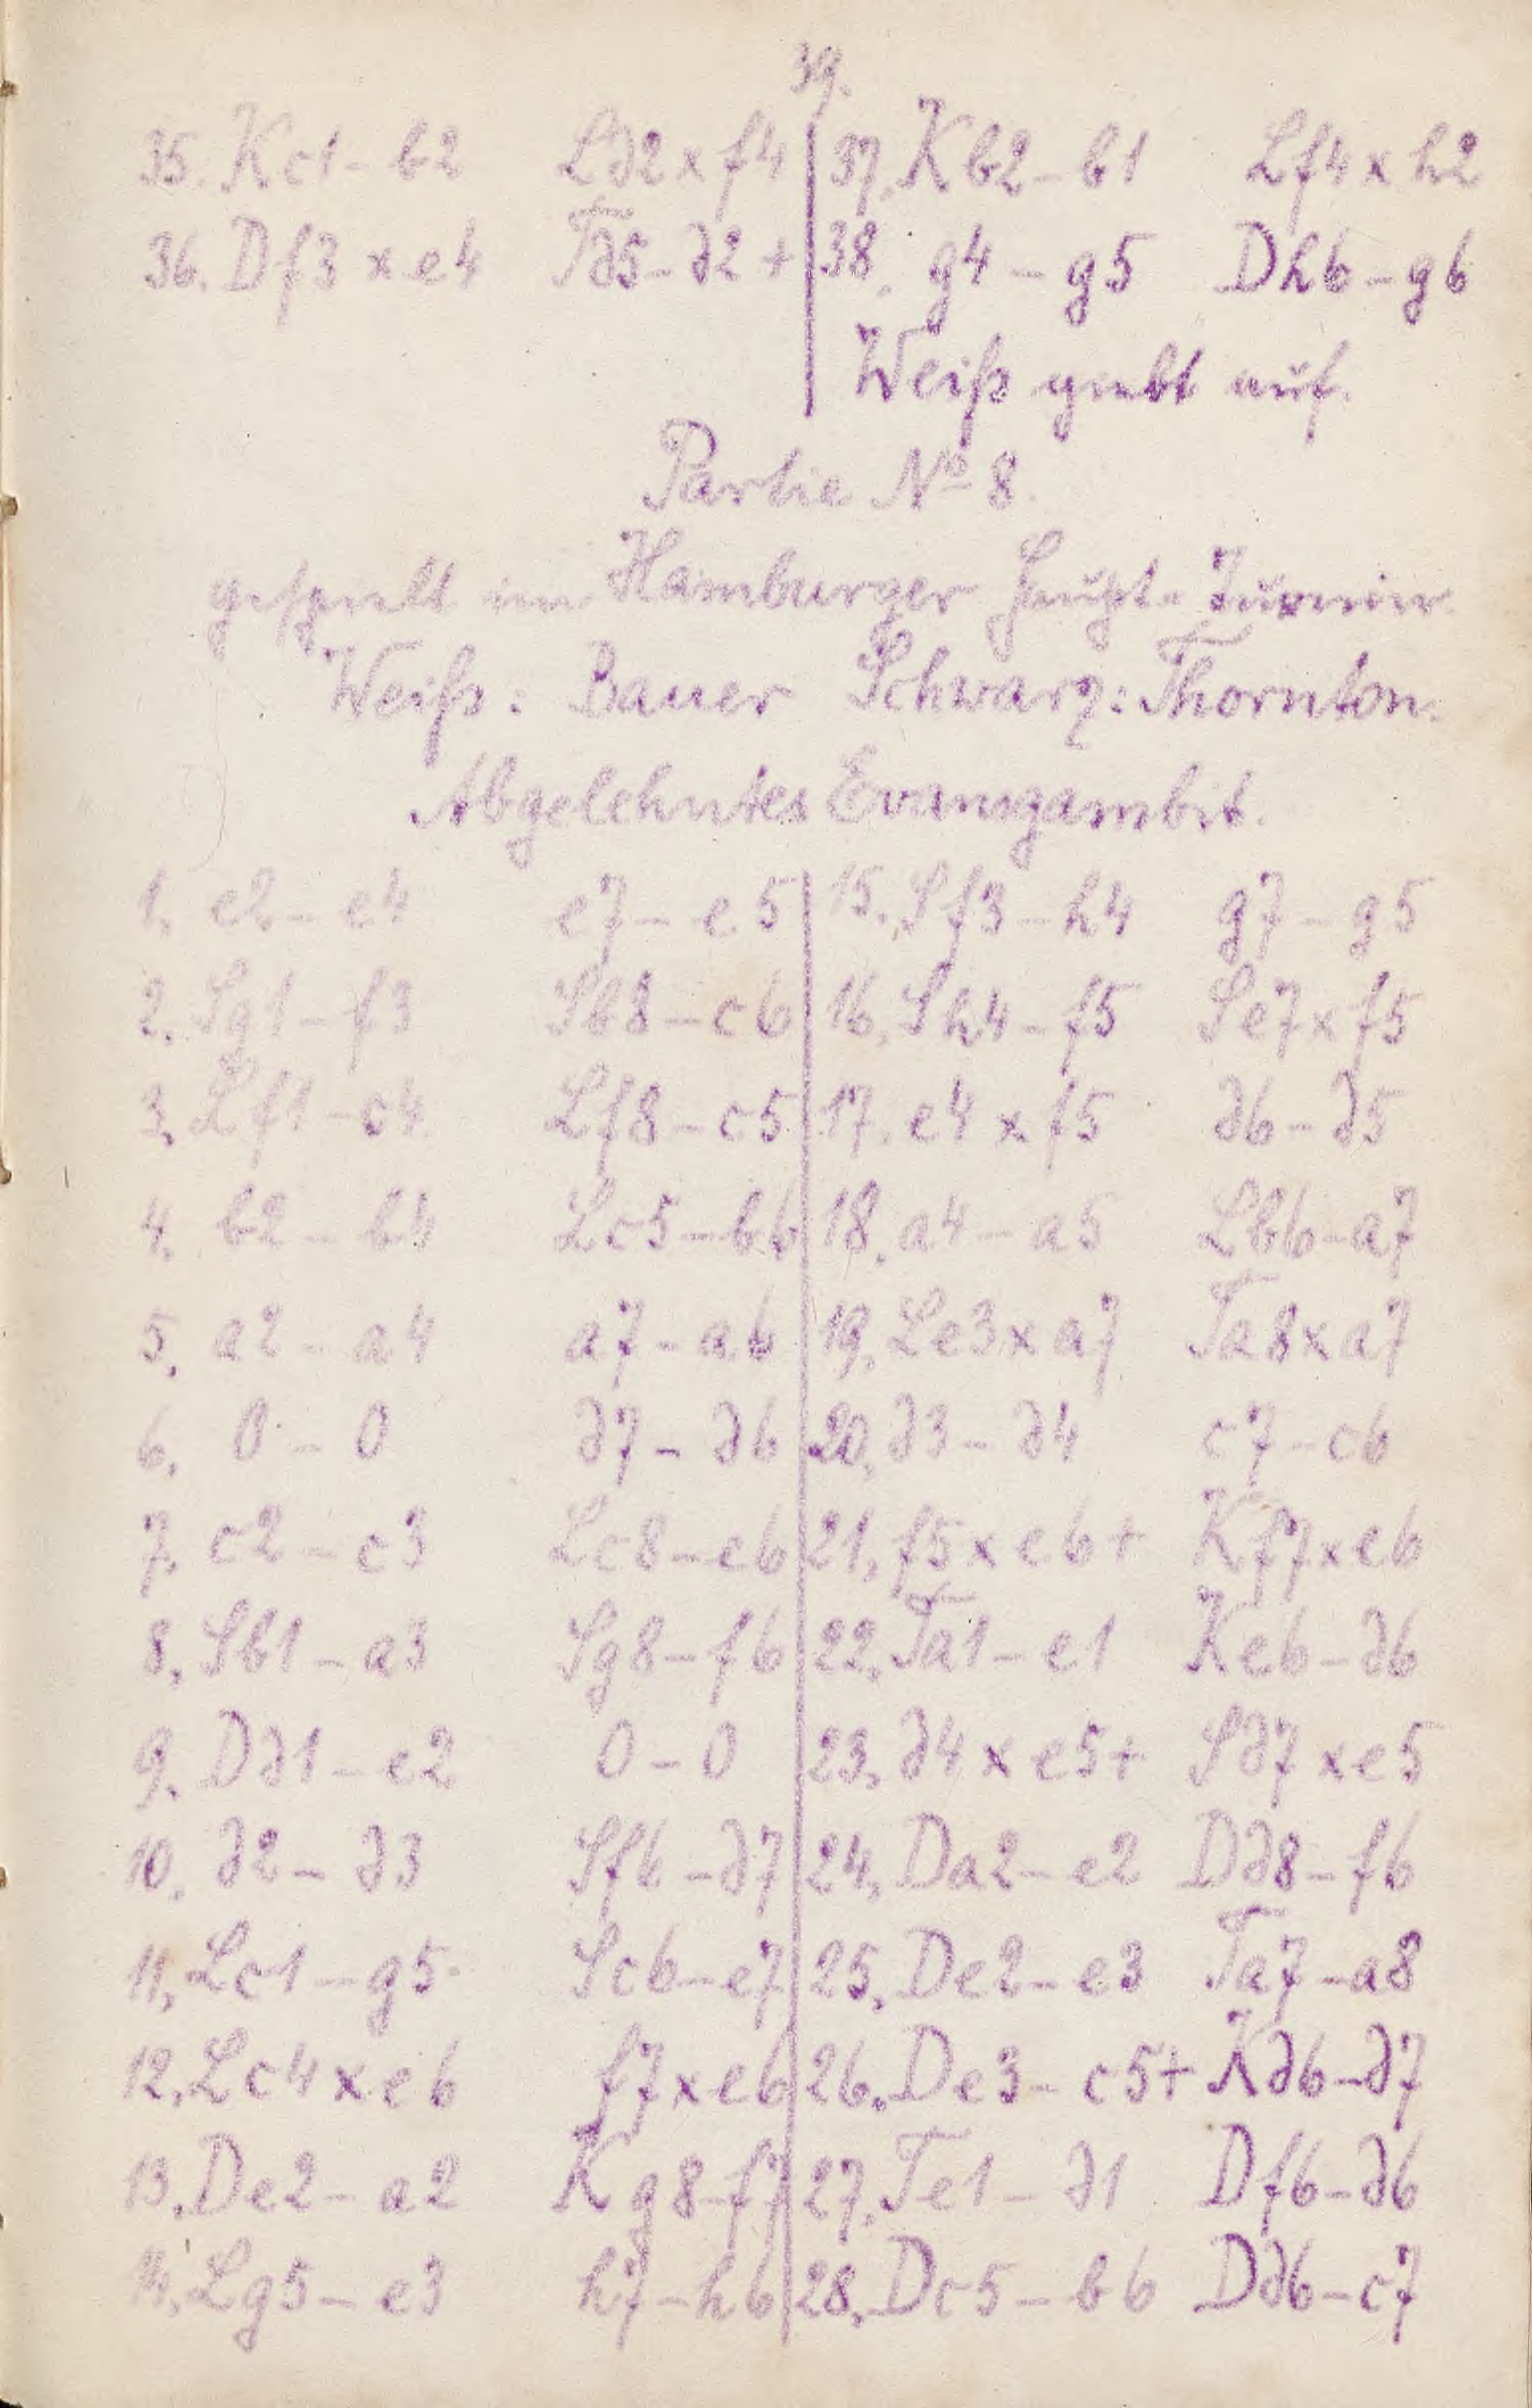 39.
35. Kc1 - b2 Ld2 x f4
36. Df3 x e4 Td5 - d2 +
37. Kb2 - b1 Lf4 x h2
38. g4 - g5 Dh6 - g6
Weiß giebt auf.
Partie No 8.
gespielt im Hamburger Haupt-Turnier.
Weiß: Bauer Schwarz: Thornton.
Abgelehntes Evansgambit.
1. e2 - e4 e7 - e5
2. Sg1 - f3 Sb8 - c6
3. Lf1 - c4 Lf8 - c5
4. b2 - b4 Lc5 - b6
5. a2 - a4 a7 - a6
6. 0 - 0 d7 - d6
7. c2 - c3 Lc8 - e6
8. Sb1 - a3 Sg8 - f6
9. Dd1 - e2 0 - 0
10. d2 - d3 Sf6 - d7
11. Lc1 - g5 Sc6 - e7
12. Lc4 x e6 f7 x e6
13. De2 - a2 Kg8 - f7
14. Lg5 - e3 h7 - h6
15. Sf3 - h4 g7 - g5
16. Sh4 - f5 Se7 x f5
17. e4 x f5 d6 - d5
18. a4 - a5 Lb6 - a7
19. Le3 x a7 Ta8 x a7
20. d3 - d4 c7 - c6
21. f5 x e6 + Kf7 x e6
22. Ta1 - e1 Ke6 - d6
23. d4 x e5 + Sd7 x e5
24. Da2 - e2 Dd8 - f6
25. De2 - e3 Ta7 - a8
26. De3 - c5 + Kd6 - d7
27. Te1 - d1 Df6 - d6
28. Dc5 - b6 Dd6 - c7